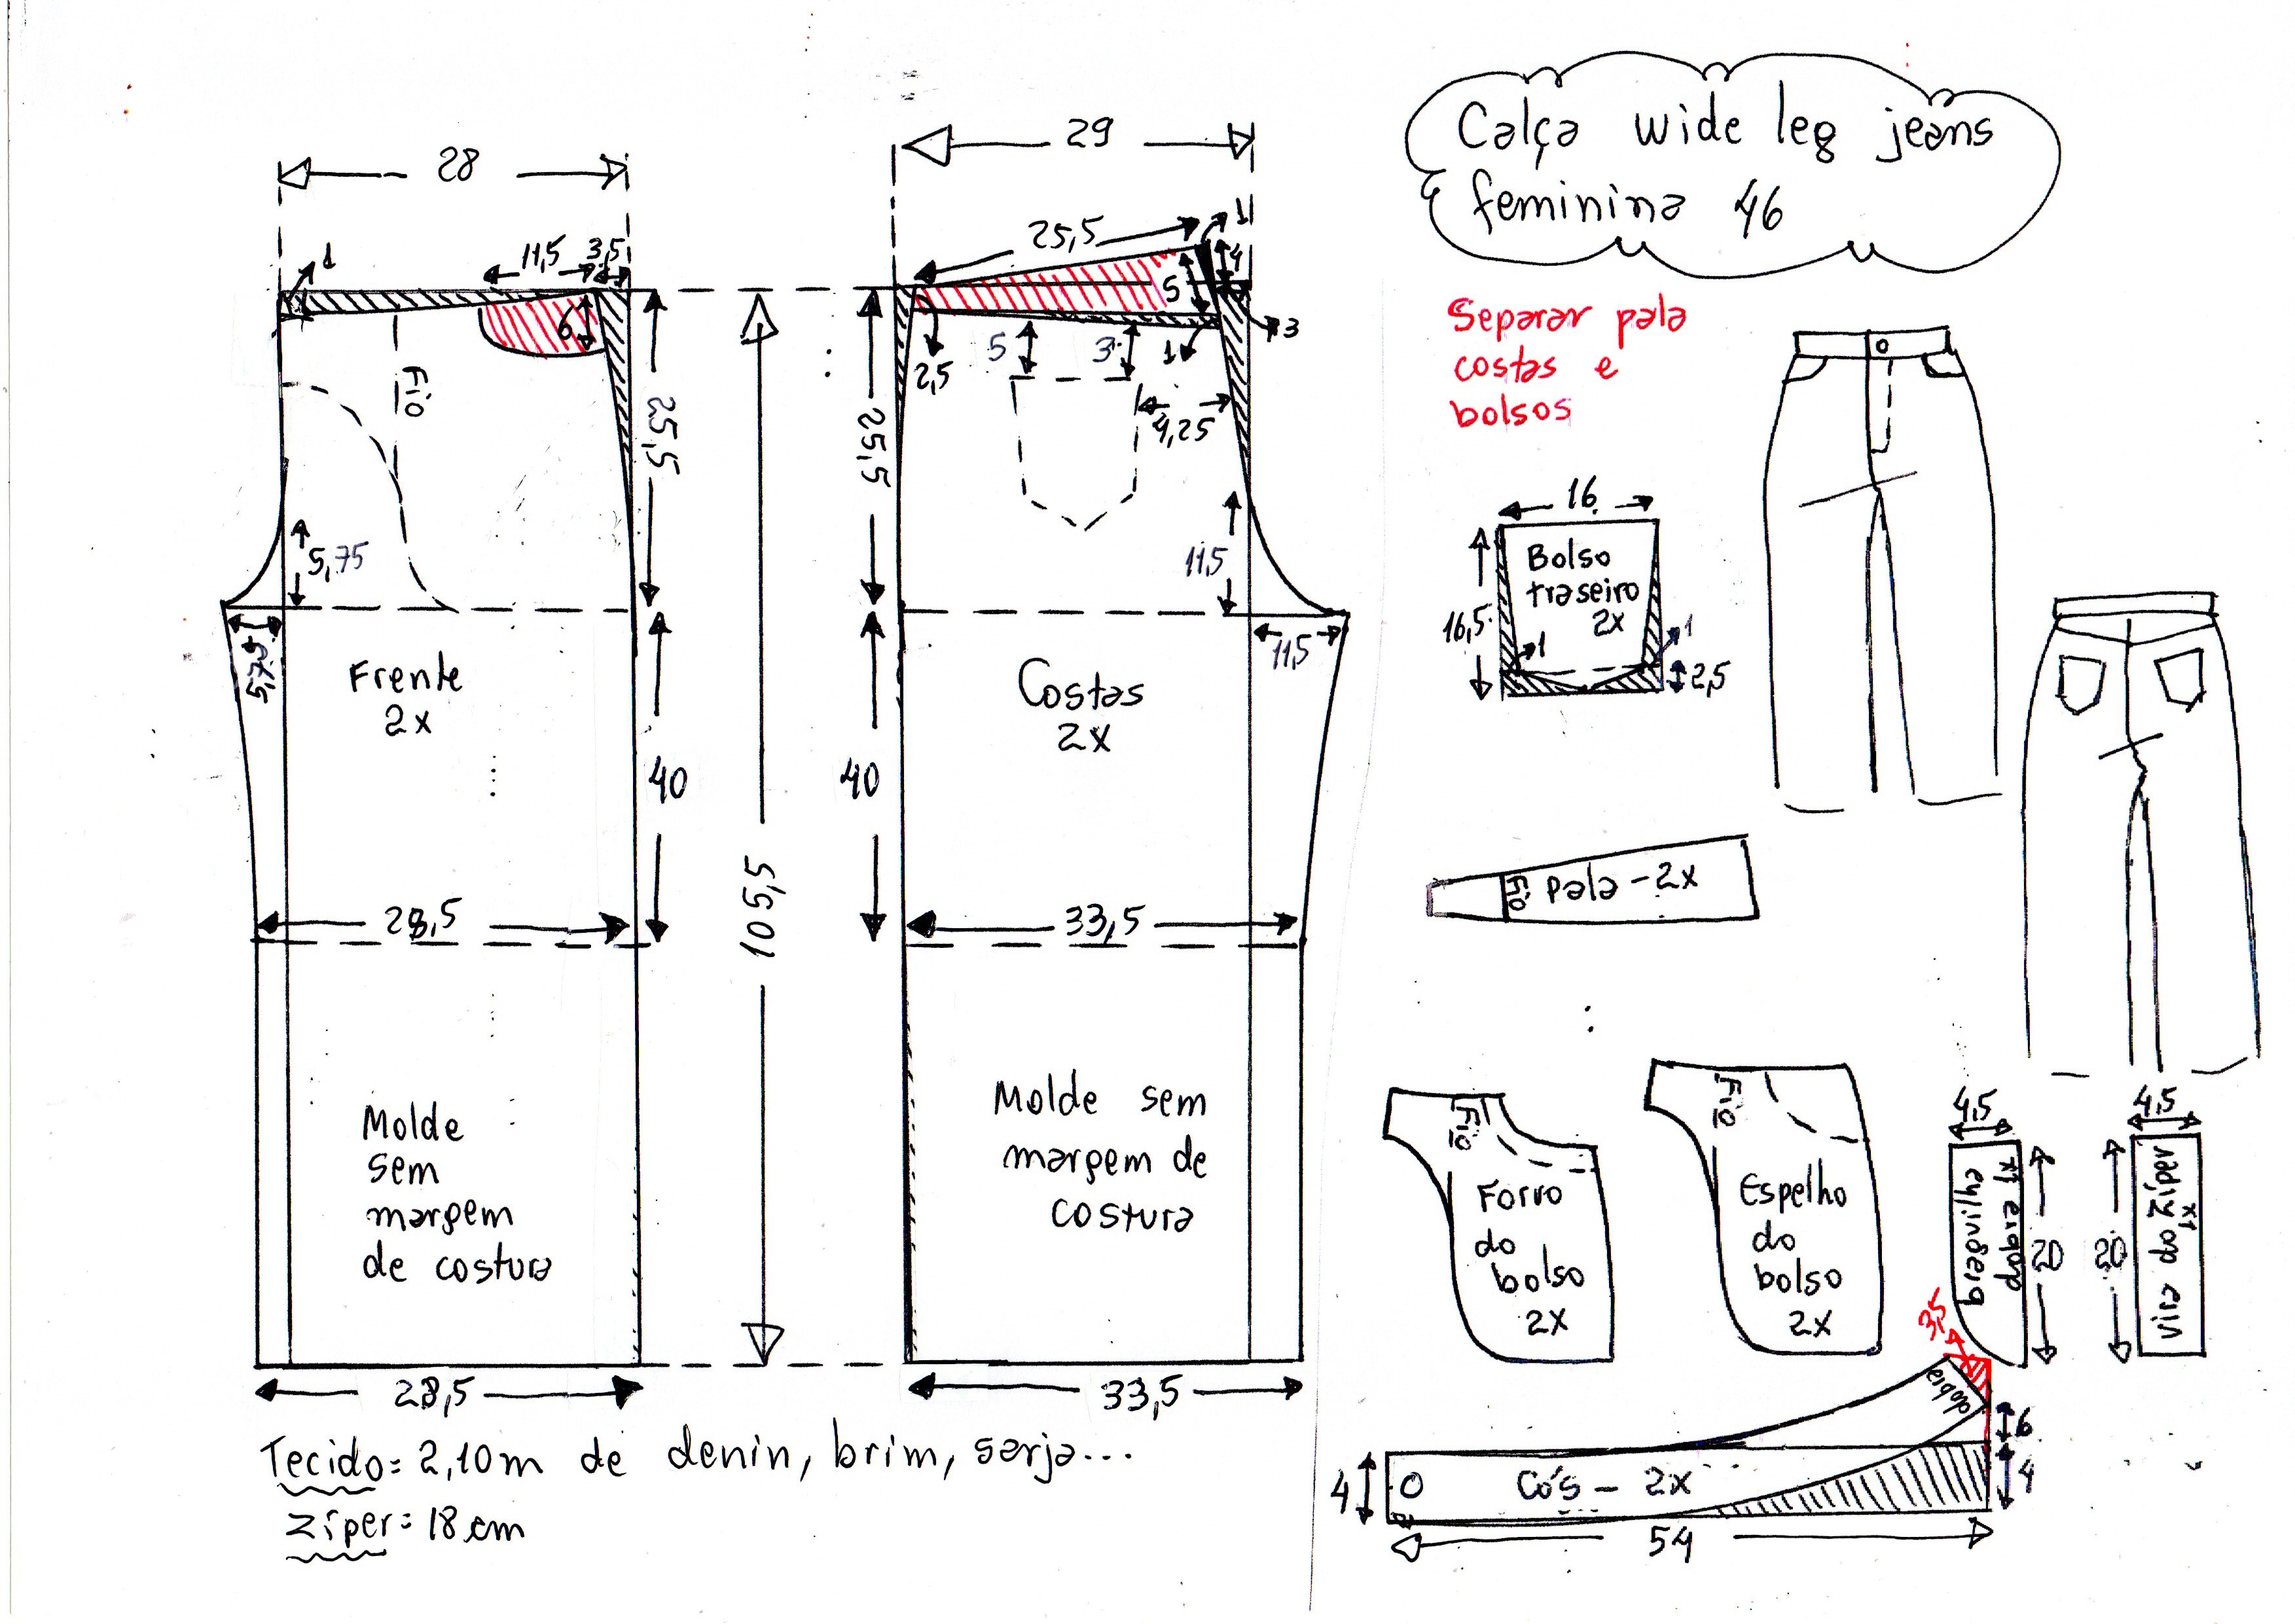 Calça wide leg jeans
feminina 46
28
1
11,5
3,5
6
Fio
25,5
5,75
5,75
Frente
2x
40
28,5
Molde
sem
margem
de costura
28,5
105,5
29
25,5
1
4
5
3
2,5
5
3
1
4,25
25,5
11,5
11,5
Costas
2x
40
33,5
Molde sem
margem de
costura
33,5
Tecido= 2,10m de denin, brim, sarja...
zíper= 18 cm
Separar pala
costas e
bolsos
16
Bolso
traseiro
2x
16,5
1
1
2,5
Fio
pala - 2x
Fio
Forro
do
bolso
2x
Fio
Espelho
do
bolso
2x
4,5
braguilha
dobra 1x
20
4,5
vista do zíper
1x
20
3,5
dobra
6
4
4
Cós - 2x
54